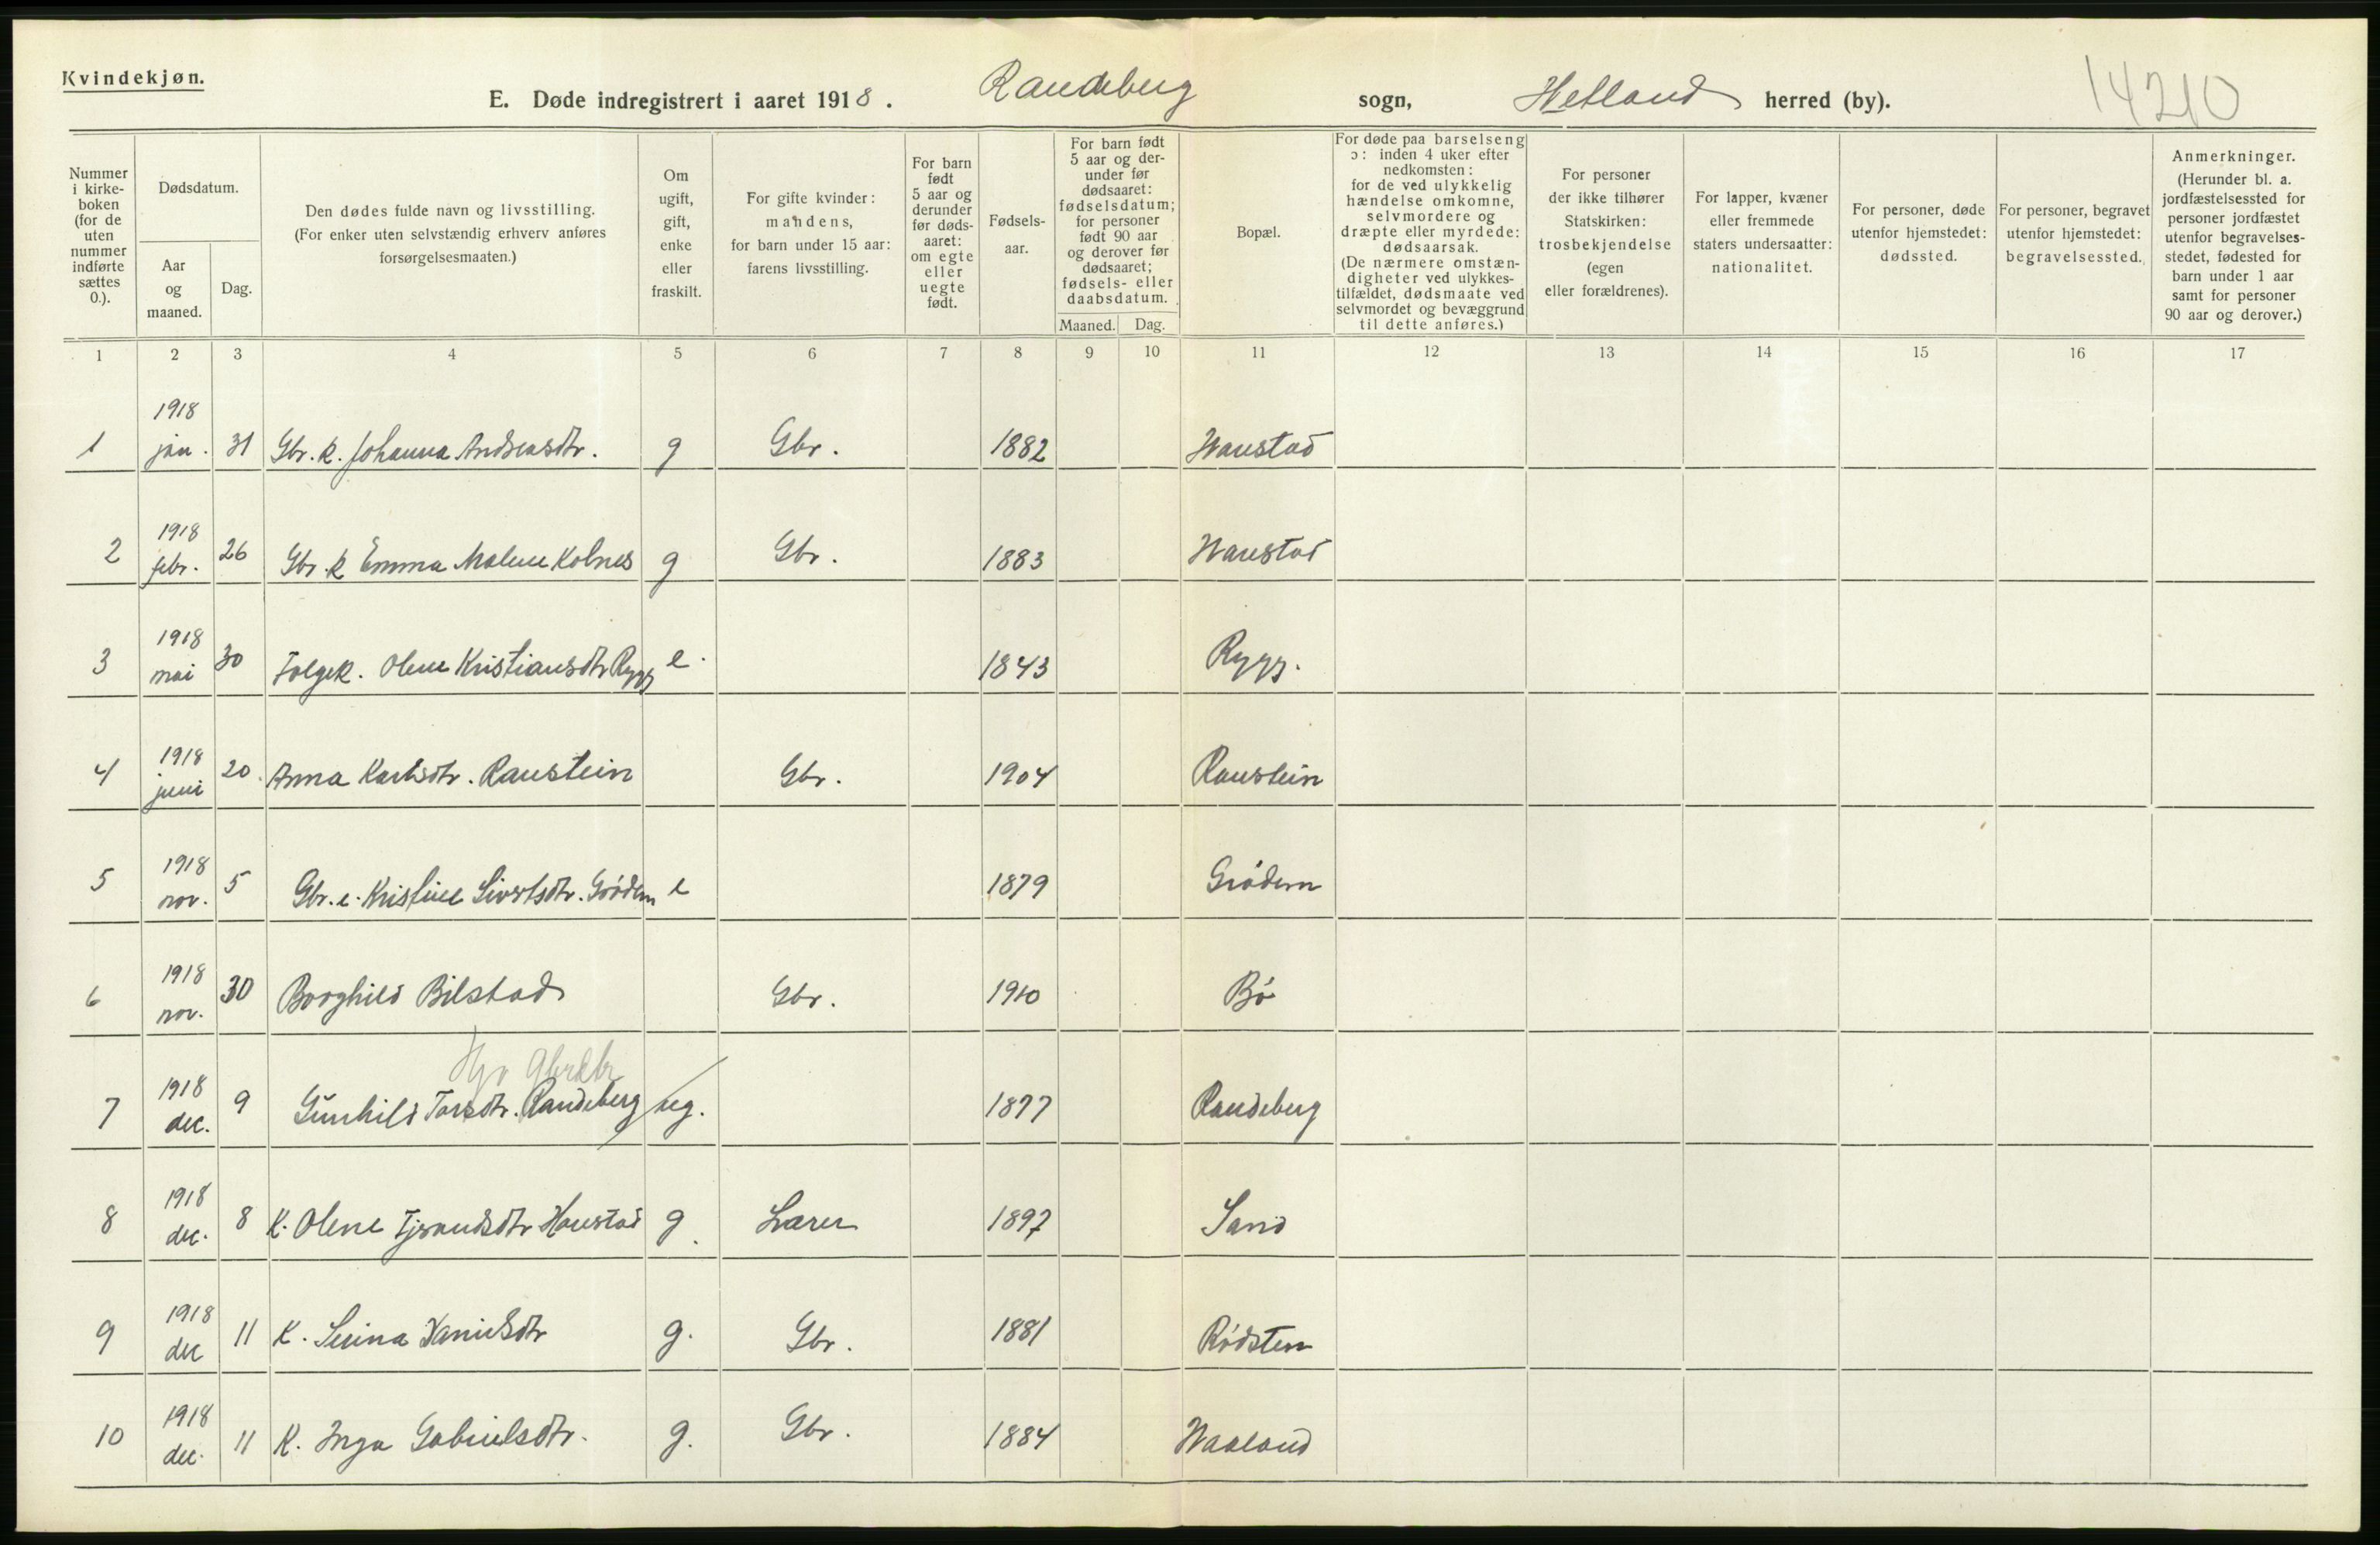 Kvindekjøn.
E. Døde indregistrert i aaret 1918. Randeberg sogn, Hetland herred (by). 14210
Nummer i kirkeboken (for de uten nummer indførte sættes 0.).
Dødsdatum.
Aar og maaned.
Dag.
Den dødes fulde navn og livsstilling.
(For enker uten selvstændig erhverv anføres forsørgelsesmaaten.)
Om ugift, gift, enke eller fraskilt.
For gifte kvinder: mandens, for barn under 15 aar: farens livsstilling.
For barn født 5 aar og derunder før dødsaaret: om egte eller uegte født.
Fødselsaar.
For barn født 5 aar og derunder før dødsaaret: fødselsdatum; for personer født 90 aar og derover før dødsaaret; fødsels- eller daabsdatum.
Maaned. Dag.
Bopæl.
For døde paa barselseng ɔ: inden 4 uker efter nedkomsten: for de ved ulykkelig hændelse omkomne, selvmordere og dræpte eller myrdede: dødsaarsak. (De nærmere omstændigheter ved ulykkestilfældet, dødsmaate ved selvmordet og bevæggrund til dette anføres.)
For personer der ikke tilhører Statskirken: trosbekjendelse (egen eller forældrenes).
For lapper, kvæner eller fremmede staters undersaatter: nationalitet.
For personer, døde utenfor hjemstedet: dødssted.
For personer, begravet utenfor hjemstedet: begravelsessted.
Anmerkninger. (Herunder bl. a. jordfæstelsessted for personer jordfæstet utenfor begravelsesstedet, fødested for barn under 1 aar samt for personer 90 aar og derover.)
1 2 3 4 5 6 7 8 9 10 11 12 13 14 15 16 17
1 1918 jan. 31 Gbr. k. Johanna Andreasdtr. g Gbr. 1882 Haustad
2 1918 febr. 26 Gbr. k Emma Malene Kolnes g Gbr. 1883 Haustad
3 1918 mai 30 Folgek. Olene Kristiansdtr Rygg e. 1843 Rygg.
4 1918 juni 20. Anna Karlsdtr. Raustein Gbr. 1904 Raustein
5 1918 nov. 5 Gbr. e. Kristine Sivertsdtr. Grødem e 1879 Grødem
6 1918 nov. 30 Borghild Bilstad Gbr. 1910 Bø
7 1918 dec. 9 Gunhild Torsdtr. Randeberg ug. 1877 Randeberg
8 1918 dec. 8 K. Olene Tjerandsdtr Haustad g. Lærer 1897 Sand
9 1918 dec 11 K. Serina Danielsdtr g. Gbr. 1881 Rødsten
10 1918 dec. 11 K. Inga Gabrielsdtr. g. Gbr. 1884 Haaland